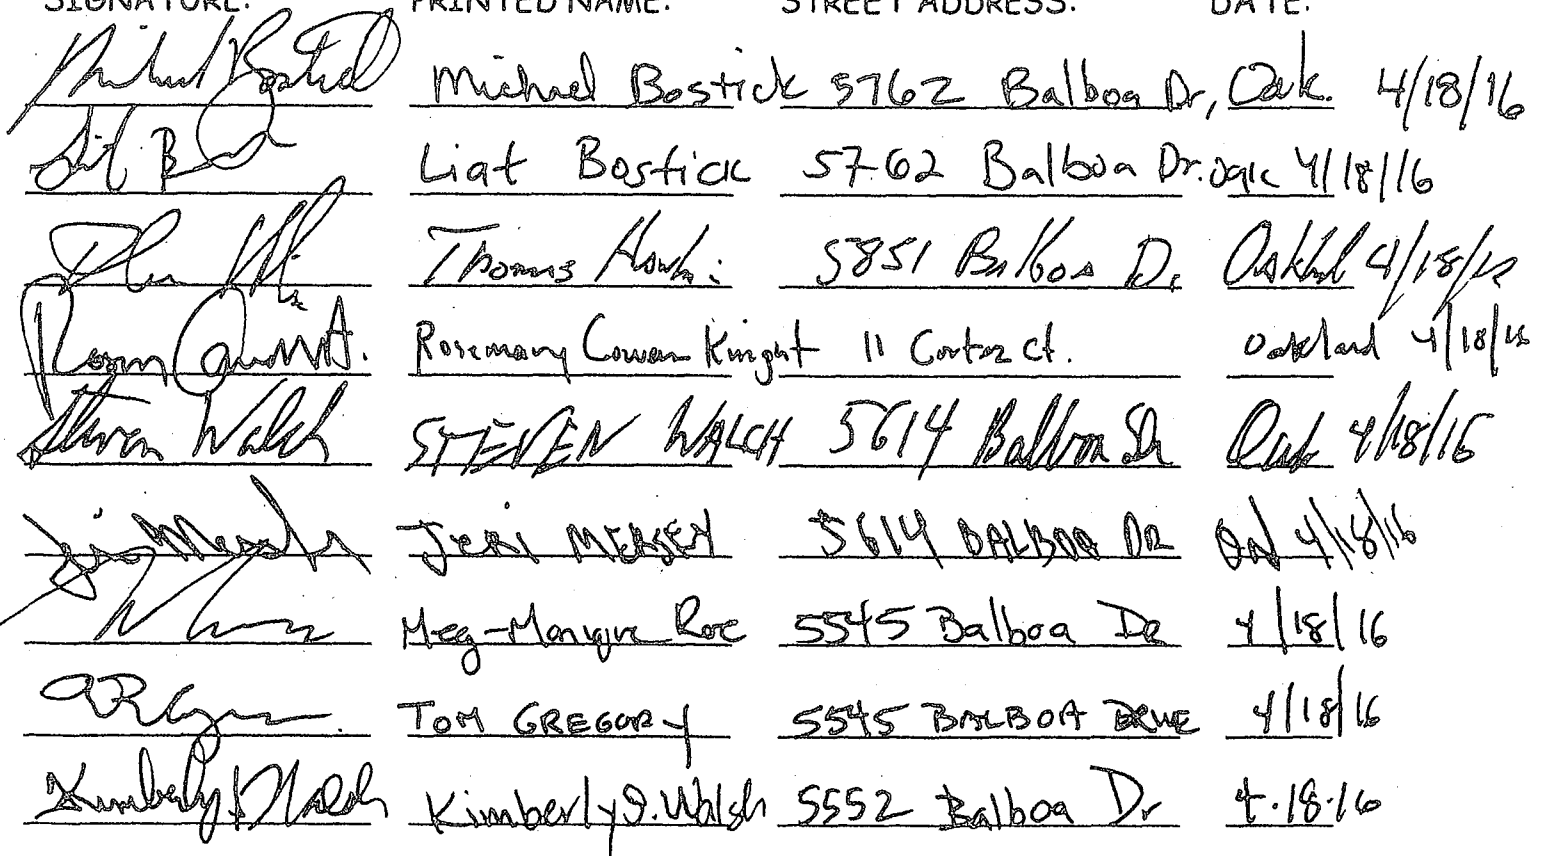 SIGNATURE: PRINTED NAME: STREET ADDRESS: DATE:
Michael Bostick 5762 Balboa Dr, Oak. 4/18/16
Liat Bostick 5762 Balboa Dr. Oak 4/18/16
Thomas 5851 Balboa Dr Oakland 4/18/16
Rosemary Cowan Knight 11 Cortez Ct. Oakland 4/18/16
Steven Walch STEVEN WALCH 5614 Balboa Dr Oak 4/18/16
JERI 5614 BALBOA DR 4/18/16
Meg- Roe 5545 Balboa Dr 4/18/16
TOM GREGORY 5545 BALBOA DRIVE 4/18/16
Kimberly J. Walsh Kimberly J. Walsh 5552 Balboa Dr 4.18.16